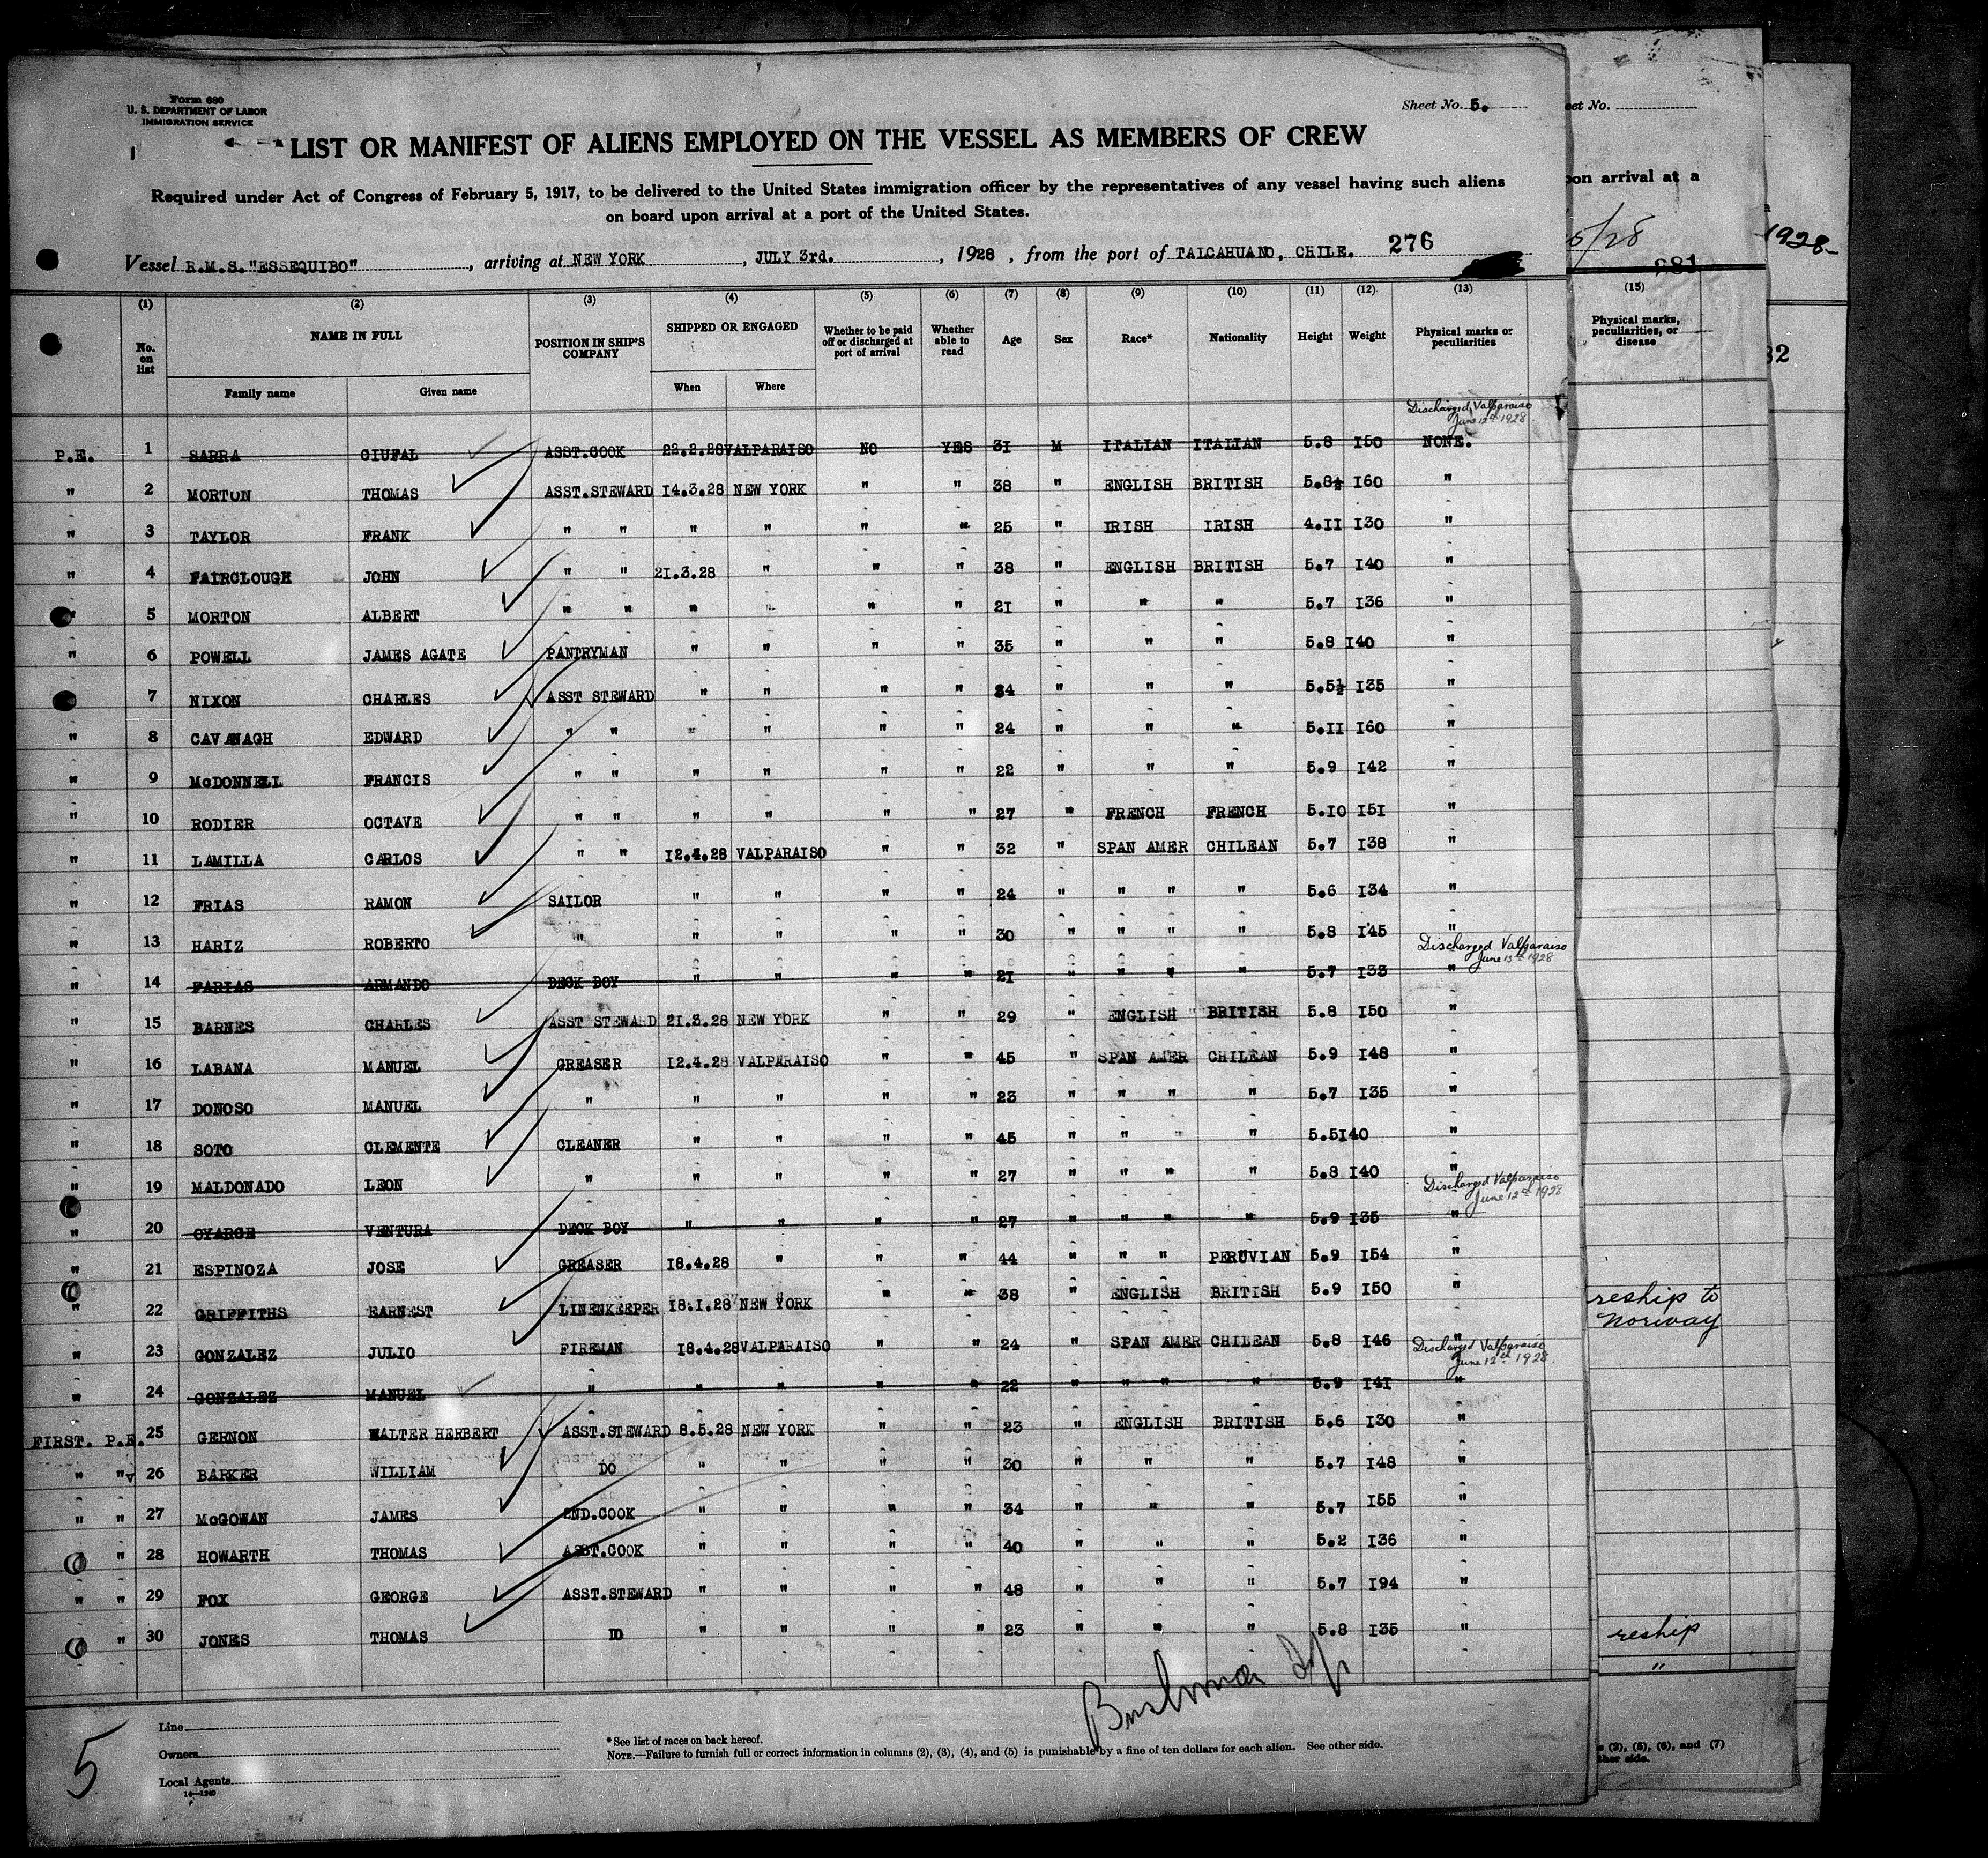 Form 680
U. S. DEPARTMENT OF LABOR
IMMIGRATION SERVICE
Sheet No. 5.
LIST OR MANIFEST OF ALIENS EMPLOYED ON THE VESSEL AS MEMBERS OF CREW
Required under Act of Congress of February 5, 1917, to be delivered to the United States immigration officer by the representatives of any vessel having such aliens
on board upon arrival at a port of the United States.
Vessel R.M.S."ESSEQUIBO", arriving at NEW YORK, JULY 3rd., 1928, from the port of TALCAHUANO, CHILE. 276
(1) (2) (3) (4) (5) (6) (7) (8) (9) (10) (11) (12) (13)
No. on list NAME IN FULL POSITION IN SHIP'S COMPANY SHIPPED OR ENGAGED Whether to be paid off or discharged at port of arrival Whether able to read Age Sex Race* Nationality Height Weight Physical marks or peculiarities
Family name Given name When Where
Discharged Valparaiso
June 12th 1928
P.E. 1 SARRA GIUFAL ASST.COOK 22.2.28 VALPARAISO NO YES 31 M ITALIAN ITALIAN 5.8 150 NONE.
" 2 MORTON THOMAS ASST.STEWARD 14.3.28 NEW YORK " " 38 " ENGLISH BRITISH 5.8½ 160 "
" 3 TAYLOR FRANK " " " " " " 25 " IRISH IRISH 4.11 130 "
" 4 FAIRCLOUGH JOHN " " 21.3.28 " " " 38 " ENGLISH BRITISH 5.7 140 "
" 5 MORTON ALBERT " " " " " " 21 " " " 5.7 136 "
" 6 POWELL JAMES AGATE PANTRYMAN " " " " 35 " " " 5.8 140 "
" 7 NIXON CHARLES ASST STEWARD " " " " 34 " " " 5.5½ 135 "
" 8 CAVANAGH EDWARD " " " " " " 24 " " " 5.11 160 "
" 9 McDONNELL FRANCIS " " " " " " 22 " " " 5.9 142 "
" 10 RODIER OCTAVE " " " " " " 27 " FRENCH FRENCH 5.10 151 "
" 11 LAMILLA CARLOS " " 12.4.28 VALPARAISO " " 32 " SPAN AMER CHILEAN 5.7 138 "
" 12 FRIAS RAMON SAILOR " " " " 24 " " " " 5.6 134 "
" 13 HARIZ ROBERTO " " " " " 30 " " " " 5.8 145 "
Discharged Valparaiso
June 13th 1928
" 14 FARIAS ARMANDO DECK BOY " " " " 21 " " " " 5.7 133 "
" 15 BARNES CHARLES ASST STEWARD 21.3.28 NEW YORK " " 29 " ENGLISH BRITISH 5.8 150 "
" 16 LABANA MANUEL GREASER 12.4.28 VALPARAISO " " 45 " SPAN AMER CHILEAN 5.9 148 "
" 17 DONOSO MANUEL " " " " " 23 " " " " 5.7 135 "
" 18 SOTO CLEMENTE CLEANER " " " " 45 " " " " 5.5 140 "
" 19 MALDONADO LEON " " " " " 27 " " " " 5.8 140 "
Discharged Valparaiso
June 12th 1928
" 20 OYARCE VENTURA DECK BOY " " " " 27 " " " " 5.9 135 "
" 21 ESPINOZA JOSE GREASER 18.4.28 " " " 44 " " " PERUVIAN 5.9 154 "
" 22 GRIFFITHS EARNEST LINENKEEPER 18.1.28 NEW YORK " " 38 " ENGLISH BRITISH 5.9 150 "
" 23 GONZALEZ JULIO FIREMAN 18.4.28 VALPARAISO " " 24 " SPAN AMER CHILEAN 5.8 146 "
Discharged Valparaiso
June 12th 1928
" 24 GONZALEZ MANUEL " " " " " 22 " " " " 5.9 141 "
FIRST. P.E. 25 GERNON WALTER HERBERT ASST.STEWARD 8.5.28 NEW YORK " " 23 " ENGLISH BRITISH 5.6 130 "
" " 26 BARKER WILLIAM DO " " " " 30 " " " 5.7 148 "
" " 27 McGOWAN JAMES 2ND.COOK " " " " 34 " " " 5.7 155 "
" 28 HOWARTH THOMAS ASST.COOK " " " " 40 " " " 5.2 136 "
" " 29 FOX GEORGE ASST.STEWARD " " " " 48 " " " 5.7 194 "
" 30 JONES THOMAS DO " " " " 23 " " " 5.8 135 "
Line
Owners
Local Agents
14—1240
*See list of races on back hereof.
NOTE.—Failure to furnish full or correct information in columns (2), (3), (4), and (5) is punishable by a fine of ten dollars for each alien. See other side.
5
et No.
pon arrival at a
5/28
281
(15)
Physical marks,
peculiarities, or
disease
reship to
Norway
reship
"
(2), (5), (6), and (7)
ther side.
1928
32